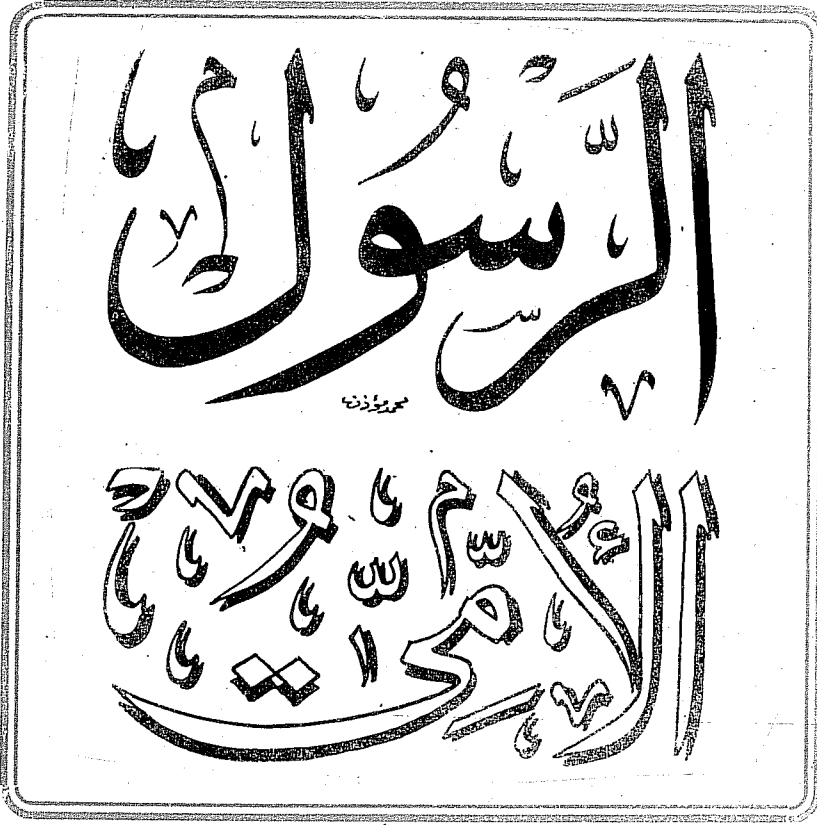 الرَّسُولُ
محمد مؤذن
الأُمِّيُّ